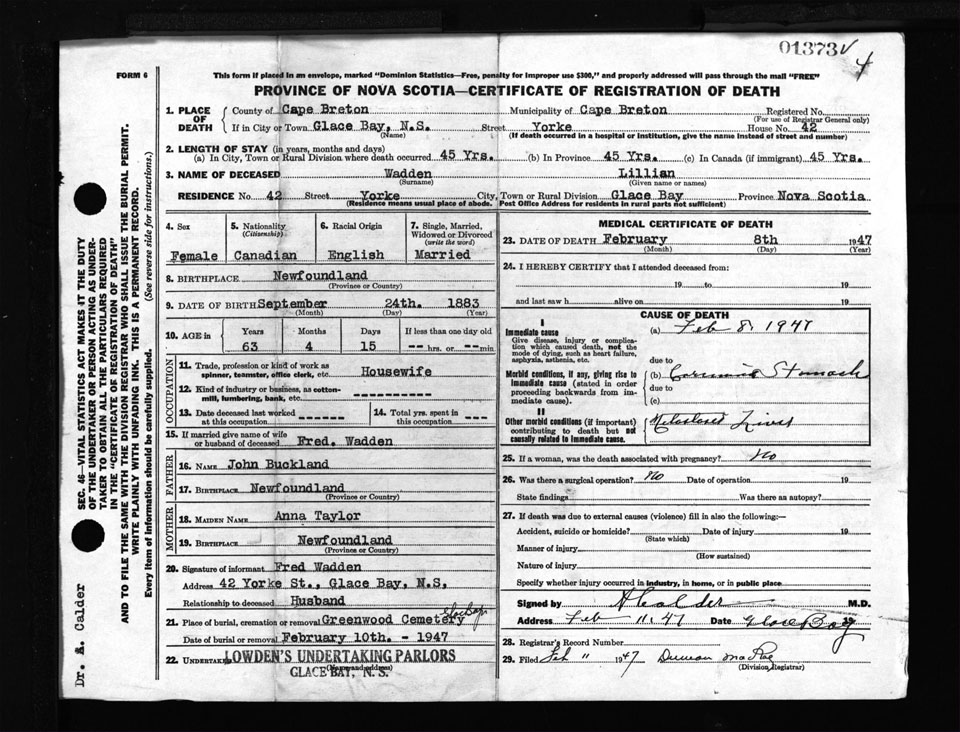 01373 √
4
FORM 6
This form if placed in an envelope, marked "Dominion Statistics—Free, penalty for improper use $300," and properly addressed will pass through the mail "FREE"
PROVINCE OF NOVA SCOTIA—CERTIFICATE OF REGISTRATION OF DEATH
1. PLACE OF DEATH County of Cape Breton Municipality of Cape Breton Registered No.
(For use of Registrar General only)
If in City or Town Glace Bay, N.S. Street Yorke House No. 42
(Name) (If death occurred in a hospital or institution, give the name instead of street and number)
2. LENGTH OF STAY (in years, months and days)
(a) In City, Town or Rural Division where death occurred 45 Yrs. (b) In Province 45 Yrs. (c) In Canada (if immigrant) 45 Yrs.
3. NAME OF DECEASED Wadden Lillian
(Surname) (Given name or names)
RESIDENCE No. 42 Street Yorke City, Town or Rural Division Glace Bay Province Nova Scotia
(Residence means usual place of abode. Post Office Address for residents in rural parts not sufficient)
4. Sex 5. Nationality (Citizenship) 6. Racial Origin 7. Single, Married, Widowed or Divorced (write the word)
Female Canadian English Married
8. BIRTHPLACE Newfoundland
(Province or Country)
9. DATE OF BIRTH September 24th. 1883
(Month) (Day) (Year)
10. AGE in Years Months Days If less than one day old
63 4 15 -- hrs. or -- min.
OCCUPATION
11. Trade, profession or kind of work as spinner, teamster, office clerk, etc. Housewife
12. Kind of industry or business, as cotton-mill, lumbering, bank, etc. -----------
13. Date deceased last worked at this occupation ------ 14. Total yrs. spent in this occupation ----
15. If married give name of wife or husband of deceased Fred. Wadden
FATHER
16. NAME John Buckland
17. BIRTHPLACE Newfoundland
(Province or Country)
MOTHER
18. MAIDEN NAME Anna Taylor
19. BIRTHPLACE Newfoundland
(Province or Country)
20. Signature of informant Fred Wadden
Address 42 Yorke St., Glace Bay, N.S,
Relationship to deceased Husband
21. Place of burial, cremation or removal Greenwood Cemetery Glace Bay
Date of burial or removal February 10th. - 1947
22. Undertaker LOWDEN'S UNDERTAKING PARLORS
(Name and address)
GLACE BAY, N. S.
MEDICAL CERTIFICATE OF DEATH
23. DATE OF DEATH February 8th 1947
(Month) (Day) (Year)
24. I HEREBY CERTIFY that I attended deceased from:
19 to 19
and last saw h alive on 19
CAUSE OF DEATH
I
Immediate cause (a) Feb 8, 1947
Give disease, injury or complication which caused death, not the mode of dying, such as heart failure, asphyxia, asthenia, etc.
due to
Morbid conditions, if any, giving rise to immediate cause (stated in order proceeding backwards from immediate cause).
(b) Stomach
due to
(c)
II
Other morbid conditions (if important) contributing to death but not causally related to immediate cause.
Liver
25. If a woman, was the death associated with pregnancy? No
26. Was there a surgical operation? No Date of operation 19
State findings Was there an autopsy?
27. If death was due to external causes (violence) fill in also the following:—
Accident, suicide or homicide? Date of injury 19
(State which)
Manner of injury
(How sustained)
Nature of injury
Specify whether injury occurred in industry, in home, or in public place
Signed by A Calder M.D.
Address Feb 11. 47 Date Glace Bay 19
28. Registrar's Record Number
29. Filed Feb 11 1947 Duncan MacRae
(Division Registrar)
SEC. 46—VITAL STATISTICS ACT MAKES IT THE DUTY
OF THE UNDERTAKER OR PERSON ACTING AS UNDER-
TAKER TO OBTAIN ALL THE PARTICULARS REQUIRED
IN THE "CERTIFICATE OF REGISTRATION OF DEATH"
AND TO FILE THE SAME WITH THE DIVISION REGISTRAR WHO SHALL ISSUE THE BURIAL PERMIT.
WRITE PLAINLY WITH UNFADING INK. THIS IS A PERMANENT RECORD.
Every item of information should be carefully supplied. (See reverse side for instructions.)
Dr. A. Calder